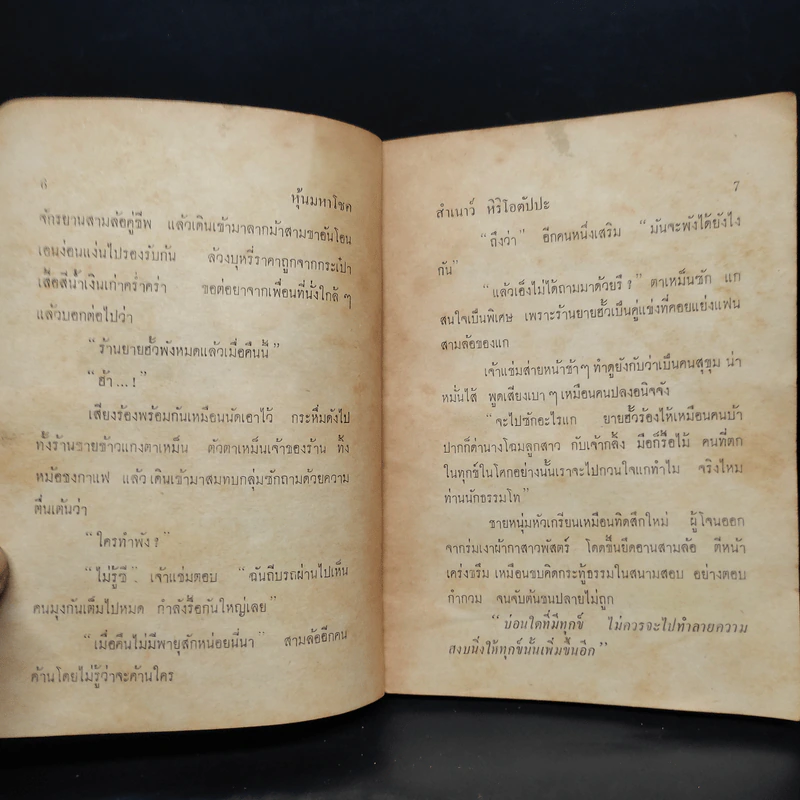 6
หุ้นมหาโชค
จักรยานสามล้อคู่ชีพ แล้วเดินเข้ามาลากม้าสามขาอันโอน
เอนง่อนแง่นไปรองรับก้น ล้วงบุหรี่ราคาถูกจากกระเป๋า
เสื้อสีน้ำเงินเก่าคร่ำคร่า ขอต่อยาจากเพื่อนที่นั่งใกล้ ๆ
แล้วบอกต่อไปว่า
“ ร้านยายฮั้วพังหมดแล้วเมื่อคืนนี้ ”
“ ฮ้า ... ! ”
เสียงร้องพร้อมกันเหมือนนัดเอาไว้ กระหึ่มดังไป
ทั้งร้านขายข้าวแกงตาเหม็น ตัวตาเหม็นเจ้าของร้าน ทิ้ง
หม้อชงกาแฟ แล้วเดินเข้ามาสมทบกลุ่มซักถามด้วยความ
ตื่นเต้นว่า
“ ใครทำพัง ? ”
“ ไม่รู้ซี ” เจ้าแช่มตอบ “ ฉันถีบรถผ่านไปเห็น
คนมุงกันเต็มไปหมด กำลังรื้อกันใหญ่เลย ”
“ เมื่อคืนไม่มีพายุสักหน่อยนี่นา ” สามล้ออีกคน
ค้านโดยไม่รู้ว่าจะค้านใคร
สำเนาว์ หิริโอตัปปะ
7
“ ถึงว่า ” อีกคนหนึ่งเสริม “ มันจะพังได้ยังไง
กัน ”
“ แล้วเอ็งไม่ได้ถามมาด้วยรึ ? ” ตาเหม็นซัก แก
สนใจเป็นพิเศษ เพราะร้านยายฮั้วเป็นคู่แข่งที่คอยแย่งแฟน
สามล้อของแก
เจ้าแช่มส่ายหน้าช้า ๆ ทำดูยังกับว่าเป็นคนสุขุม น่า
หมั่นไส้ พูดเสียงเบา ๆ เหมือนคนปลงอนิจจัง
“ จะไปซักอะไรแก ยายฮั้วร้องไห้เหมือนคนบ้า
ปากก็ด่านางโฉมลูกสาว กับเจ้ากล้ง มือก็รื้อไม้ คนที่ตก
ในทุกข์ในโศกอย่างนั้นเราจะไปกวนใจแกทำไม จริงไหม
ท่านนักธรรมโท ”
ชายหนุ่มหัวเกรียนเหมือนทิดสึกใหม่ ผู้โจนออก
จากร่มเงาผ้ากาสาวพัสตร์ โดดขึ้นยึดอานสามล้อ ตีหน้า
เคร่งขรึม เหมือนขบคิดกระทู้ธรรมในสนามสอบ อย่างตอบ
กำกวม จนจับต้นชนปลายไม่ถูก
“ บ่อนใดที่มีทุกข์ ไม่ควรจะไปทำลายความ
สงบนิ่งให้ทุกข์นั้นเพิ่มขึ้นอีก ”